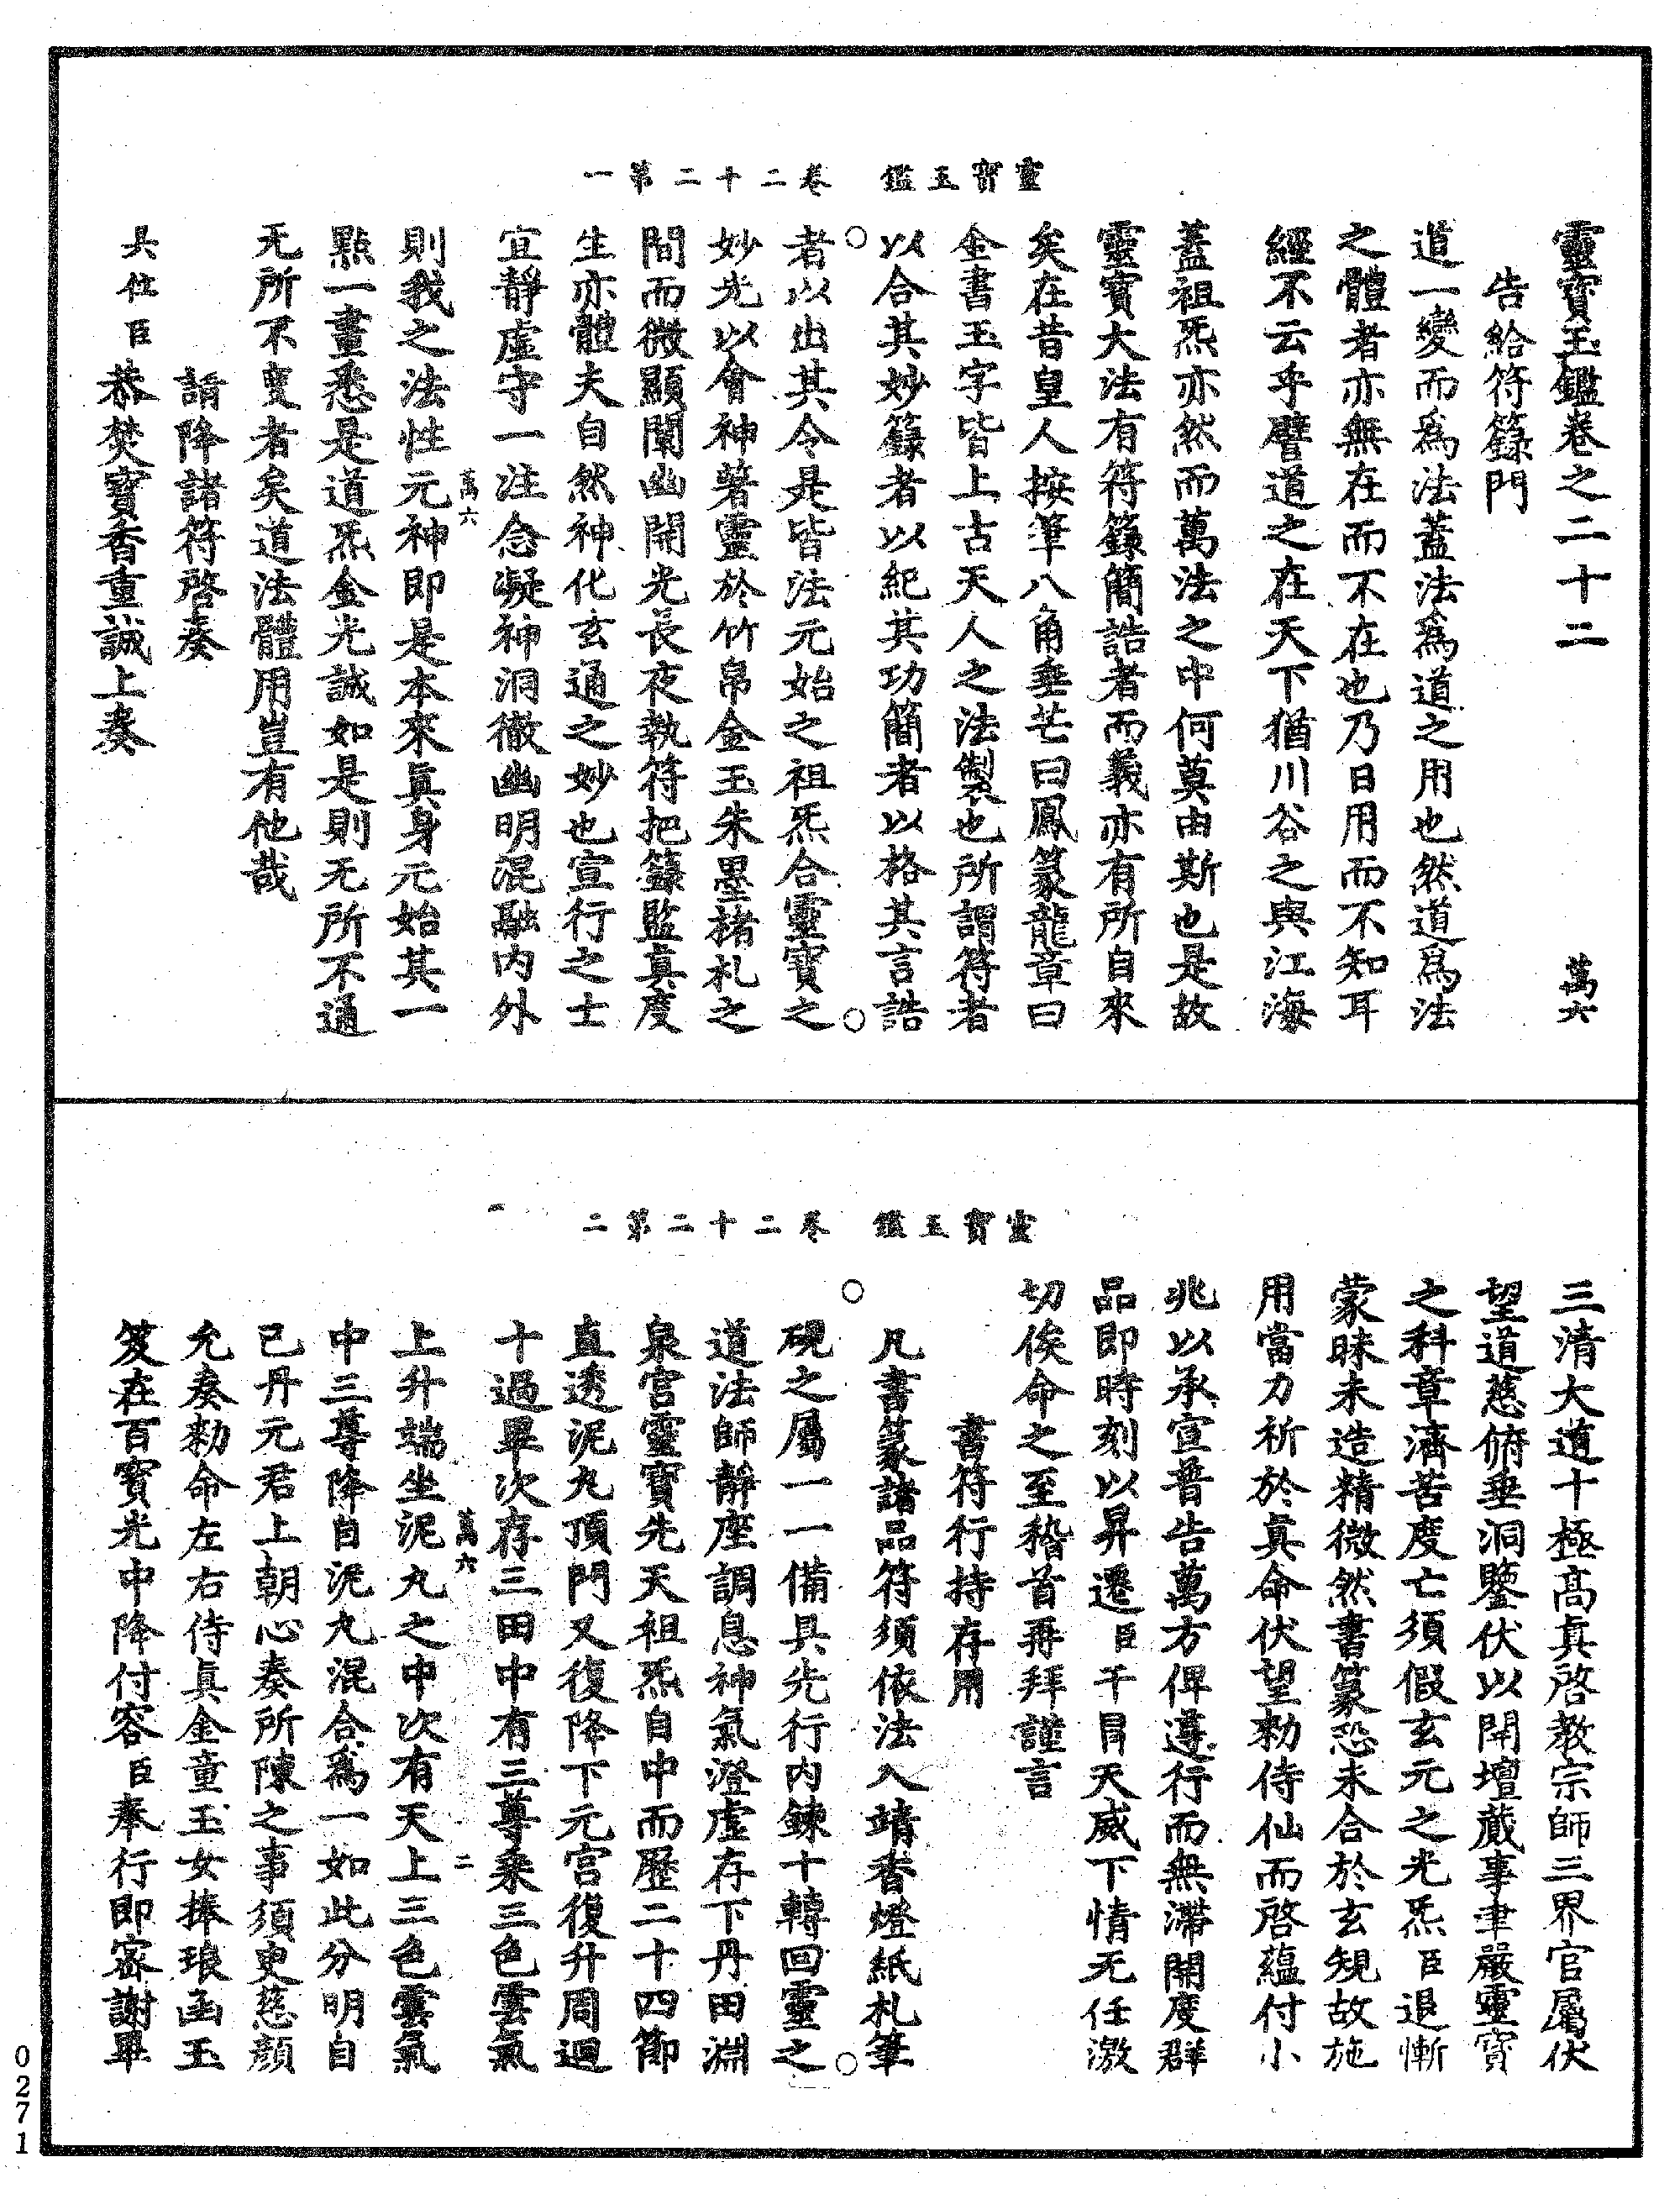 靈寶玉鑑卷之二十二　萬六
告給符籙門
道一變而爲法蓋法爲道之用也然道爲法
之體者亦無在而不在也乃日用而不知耳
經不云乎譬道之在天下猶川谷之與江海
蓋祖炁亦然而萬法之中何莫由斯也是故
靈寶大法有符籙簡誥者而義亦有所自來
矣在昔皇人按筆八角垂芒曰鳳篆龍章曰
金書玉字皆上古天人之法製也所謂符者
以合其妙籙者以紀其功簡者以格其言誥
靈寶玉鑑　卷二十二第一
者以出其令是皆法元始之祖炁合靈寶之
妙光以會神著靈於竹帛金玉朱墨楮札之
間而微顯闡幽開光長夜執符把籙監真度
生亦體夫自然神化玄通之妙也宣行之士
宜靜虛守一注念凝神洞徹幽明混融内外
則我之法性元神即是本來真身元始其一
萬六
點一畫悉是道炁金光誠如是則无所不通
无所不度者矣道法體用豈有他哉
請降諸符啓奏
具位臣恭焚寶香重誠上奏
三清大道十極高真啓教宗師三界官屬伏
望道慈俯垂洞鑒伏以開壇蕆事聿嚴靈寶
之科章濟苦度亡須假玄元之光炁臣退慚
蒙昧未造精微然書篆恐未合於玄規故施
用當力祈於真命伏望勑侍仙而啓蘊付小
兆以承宣普告萬方俾遵行而無滯開度群
品即時刻以昇遷臣干冒天威下情无任激
切俟命之至稽首再拜謹言
書符行持存用
凡書篆諸品符須依法入靖香燈紙札筆
靈寶玉鑑　卷二十二第二
硯之屬一一備具先行内鍊十轉回靈之
道法師靜座調息神氣澄虛存下丹田淵
泉宫靈寶先天祖炁自中而歷二十四節
直透泥丸頂門又復降下元宫復升周迴
十過畢次存三田中有三尊乘三色雲氣
上升端坐泥丸之中次有天上三色雲氣
萬六　二
中三尊降自泥丸混合爲一如此分明自
己丹元君上朝心奏所陳之事須臾慈顔
允奏勑命左右侍真金童玉女捧琅函玉
笈在百寶光中降付容臣奉行即密謝畢
0271